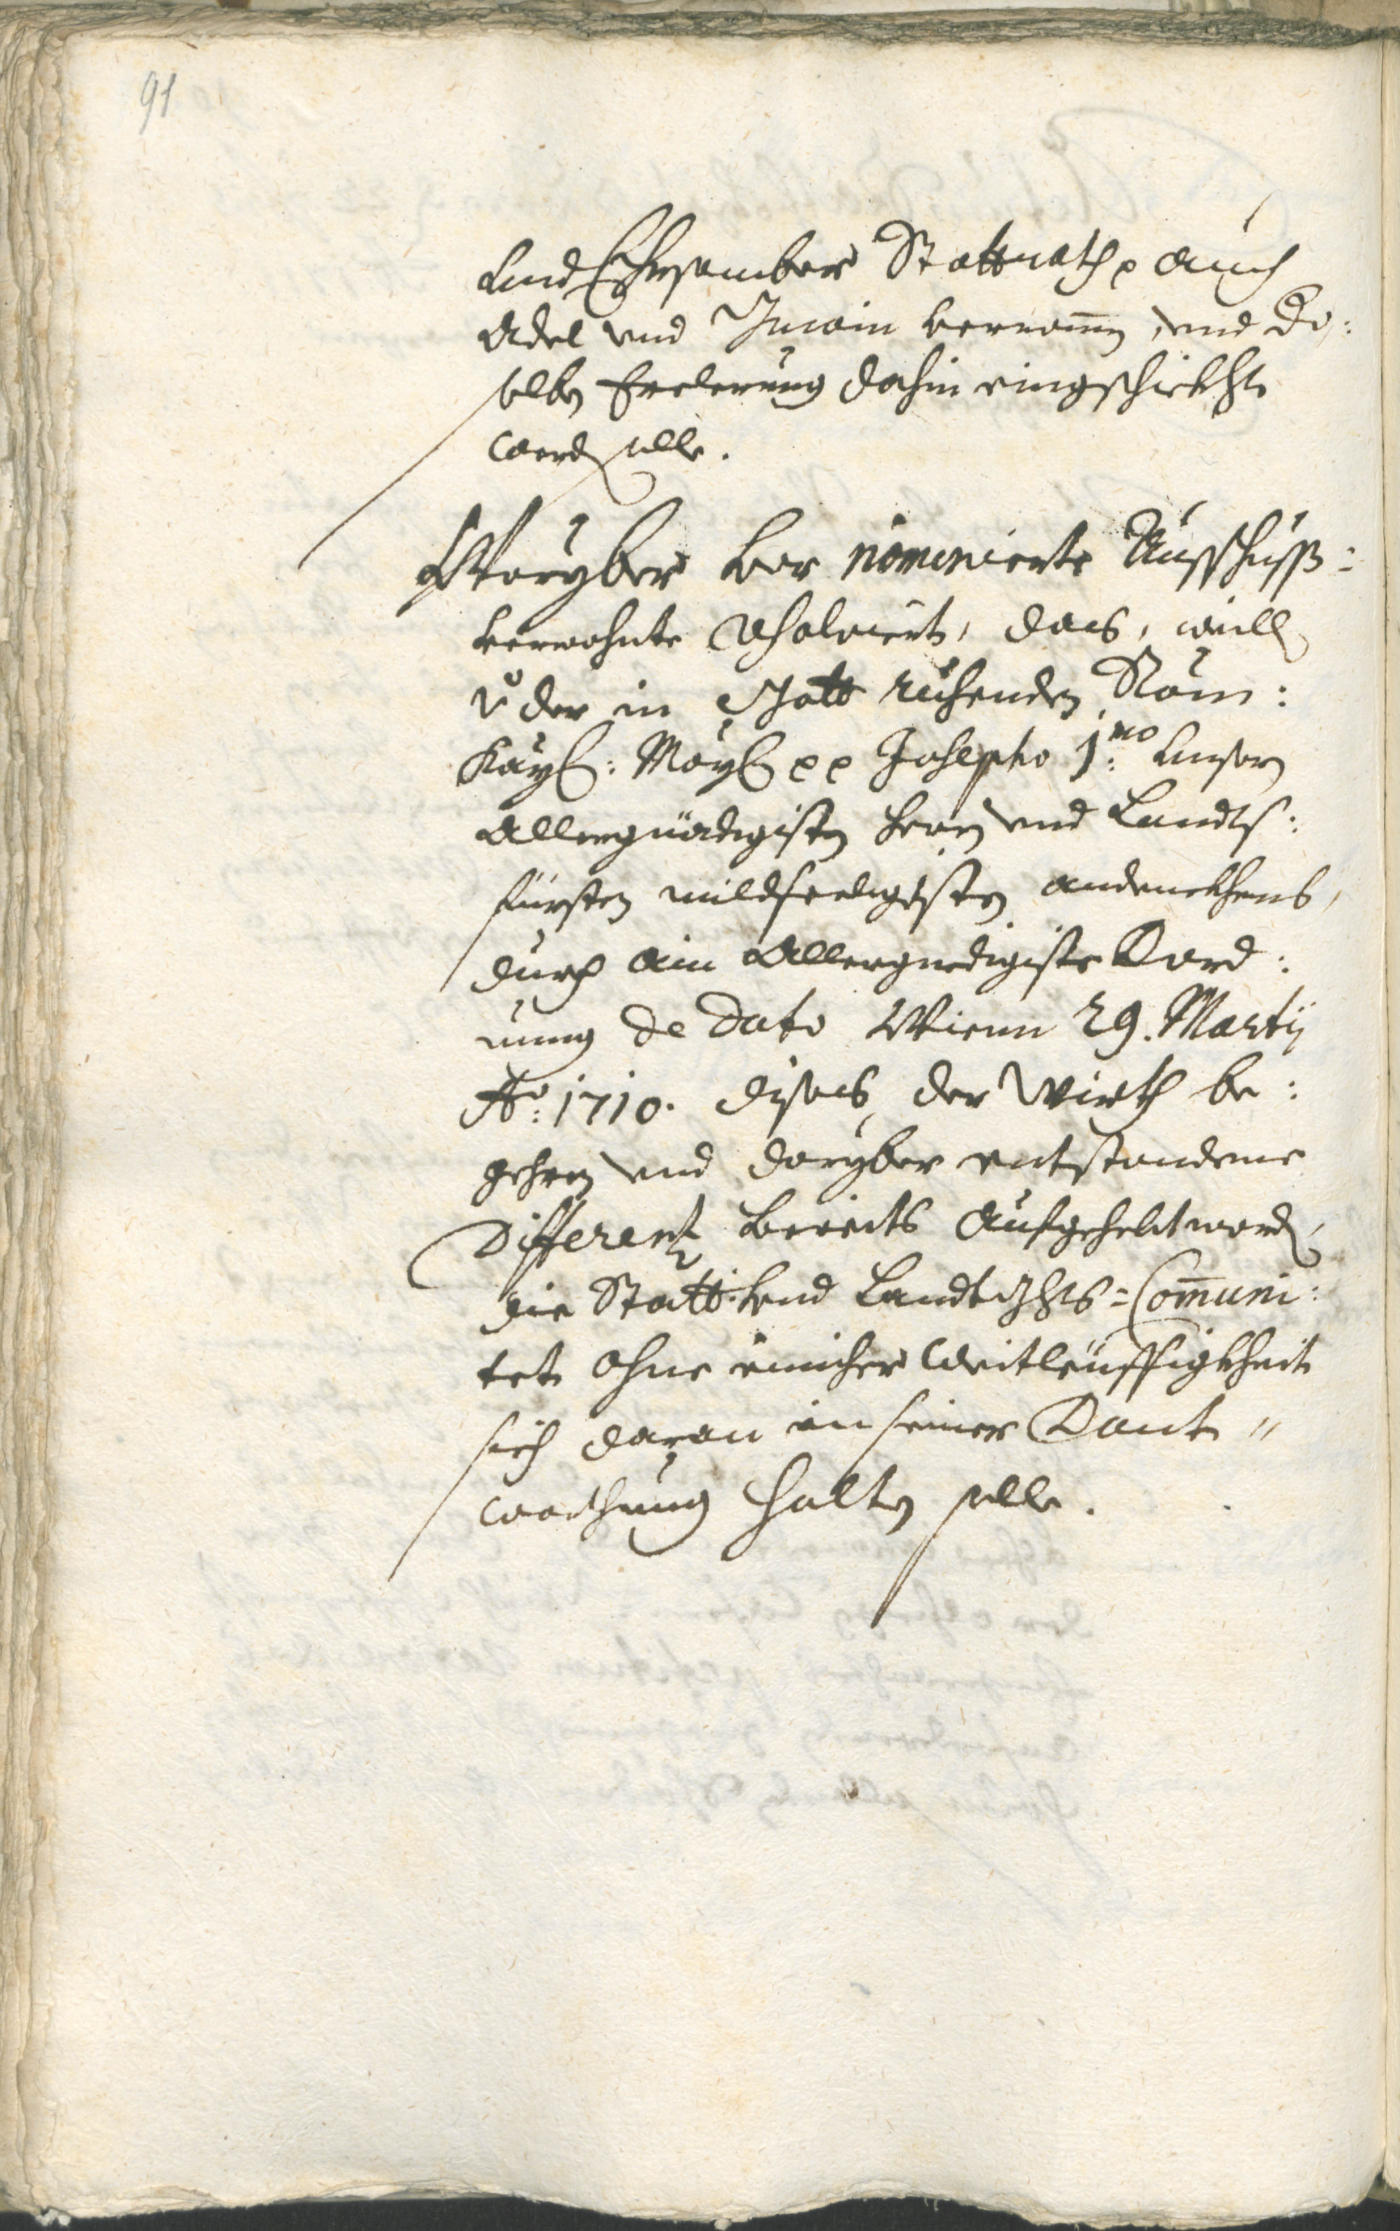 91
Und Ehrsamber Stattrath p auch
Adel und Inwoin vernom̄en, und die:
selben Erclerung dahin eingeschickht
werden solle.
Woryber vor nominierte Ausschuss:
verwohnte resolviert, das, weillen
von der in Gott ruhenden Röm:
Kay: May: pp Josepho 1:mo Unsern
Allergnädigisten herrn und Landts:
fürsten mildseeligisten andenckhens,
durch ain Allergnedigiste Verord:
nung de dato Wienn 29. Martij
Ao: 1710. dises der Wirth be:
gehren und doryber entstandene
Differenz bereits aufgehebt worden,
die Statt: und Landtgrichts=Com̄uni:
tet ohne einicher Weitleuffigkheit
sich daran in seiner Verant"
worthung halten solle.